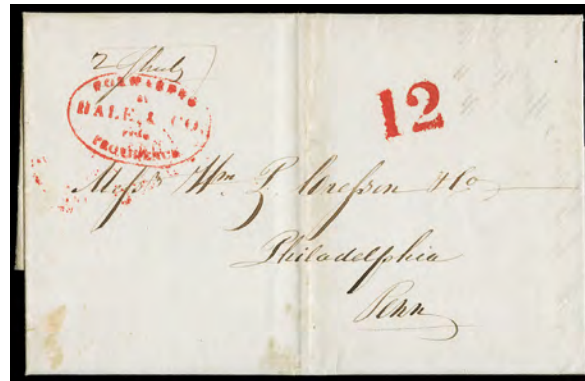 2
FORWARDED
BY
HALE & CO.
FROM
PROVIDENCE
12
Mess Wm P. Cresson & Co
Philadelphia
Penn